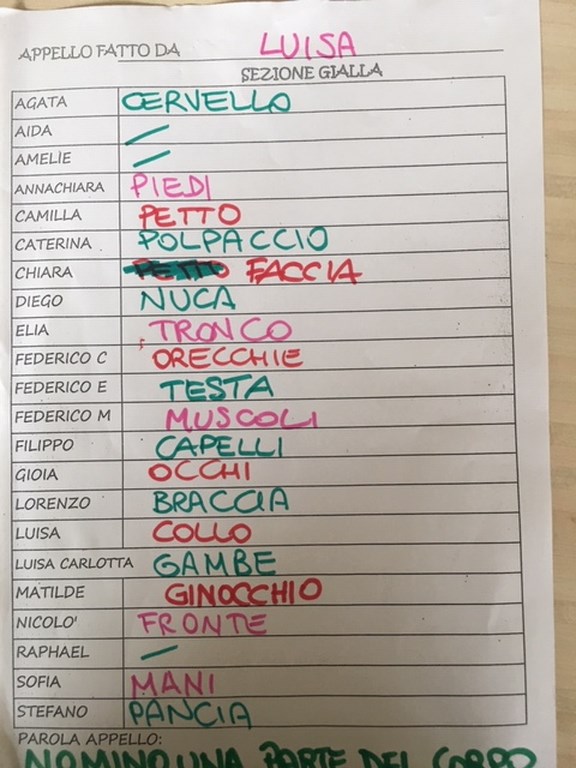 APPELLO FATTO DA LUISA
SEZIONE GIALLA
AGATA CERVELLO
AIDA /
AMELIE /
ANNACHIARA PIEDI
CAMILLA PETTO
CATERINA POLPACCIO
CHIARA PETTO FACCIA
DIEGO NUCA
ELIA TRONCO
FEDERICO C ORECCHIE
FEDERICO E TESTA
FEDERICO M MUSCOLI
FILIPPO CAPELLI
GIOIA OCCHI
LORENZO BRACCIA
LUISA COLLO
LUISA CARLOTTA GAMBE
MATILDE GINOCCHIO
NICOLO' FRONTE
RAPHAEL /
SOFIA MANI
STEFANO PANCIA
PAROLA APPELLO:
NOMINO UNA PARTE DEL CORPO